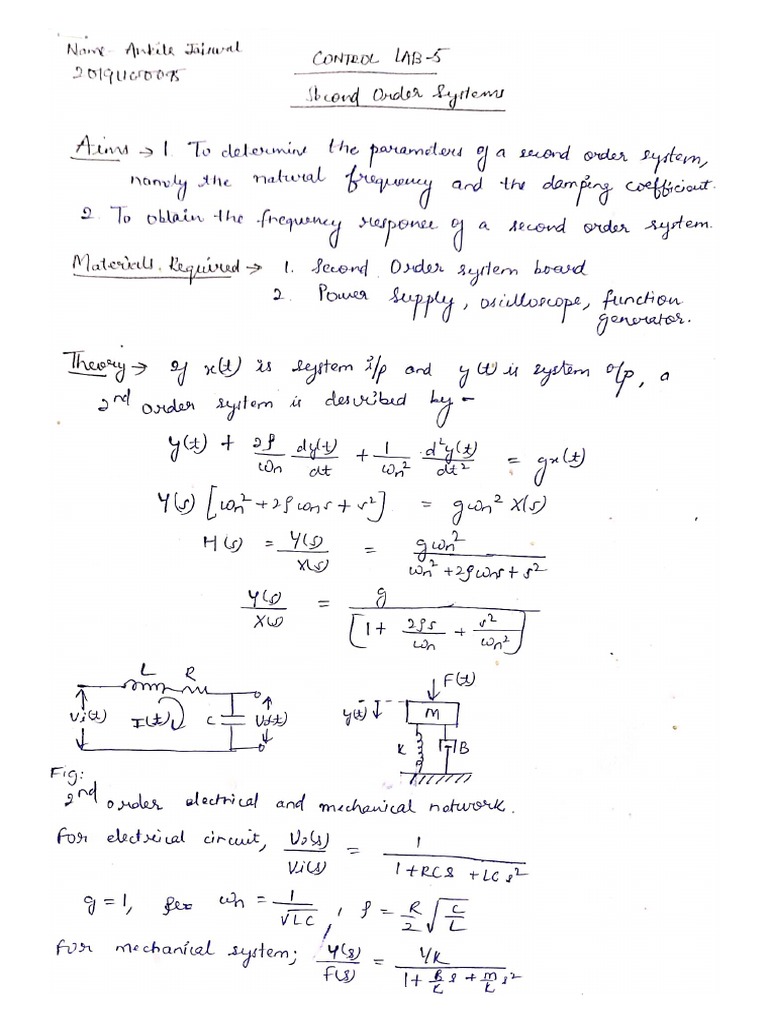 Name- Ankita Jaiswal
CONTROL LAB-5
2019UGE0095
Second Order Systems
Aims → 1. To determine the parameters of a second order system,
namely the natural frequency and the damping coefficient.
2. To obtain the frequency response of a second order system.
Materials Required → 1. Second Order system board
2. Power Supply, oscilloscope, function
generator.
Theory → If x(t) is system i/p and y(t) is system o/p, a
2nd order system is described by -
y(t) + 2ρ/ωn dy(t)/dt + 1/ωn² d²y(t)/dt² = gx(t)
Y(s) [ωn² + 2ρωns + s²] = gωn² X(s)
H(s) = Y(s)/X(s) = gωn²/ωn² + 2ρωns + s²
Y(s)/X(s) = g/[1 + 2ρs/ωn + s²/ωn²]
L R
F(t)
Vi(t) I(t) C Vo(t)
y(t) M
K B
Fig:
2nd order electrical and mechanical network.
For electrical circuit, Vo(s)/Vi(s) = 1/1 + RCs + LCs²
g = 1, ωn = 1/√LC, ρ = R/2 √C/L
For mechanical system; Y(s)/F(s) = 1/K/1 + B/K s + M/K s²